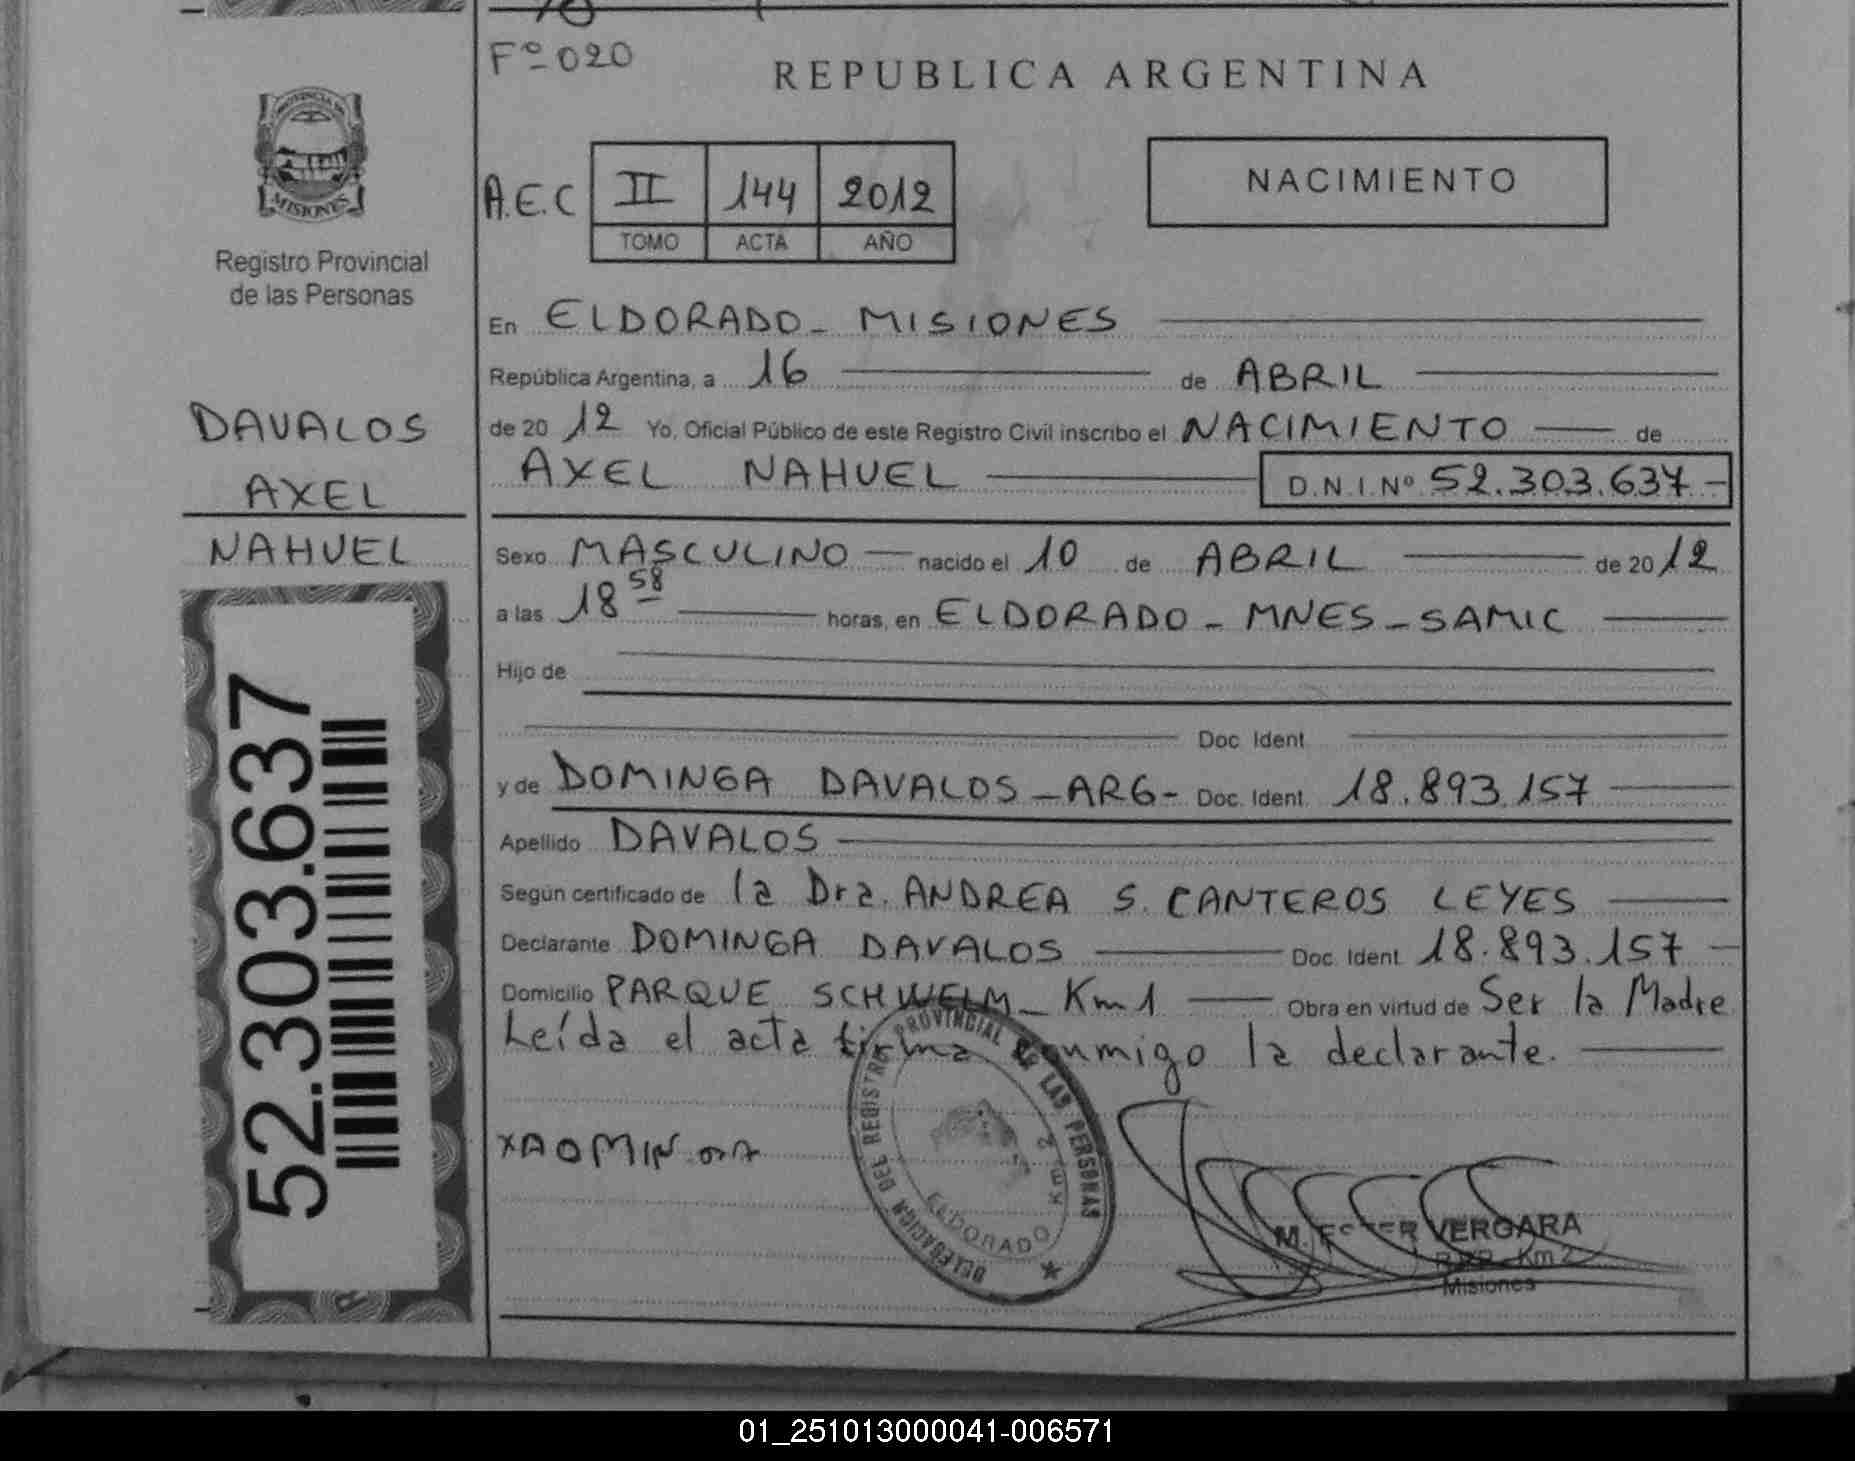 Fº 020
REPUBLICA ARGENTINA
PROVINCIA DE
MISIONES
Registro Provincial
de las Personas
A.E.C II 144 2012
TOMO ACTA AÑO
NACIMIENTO
En ELDORADO - MISIONES
República Argentina, a 16 de ABRIL
de 20 12 Yo, Oficial Público de este Registro Civil inscribo el NACIMIENTO de
AXEL NAHUEL D.N.I. Nº 52.303.637 -
DAVALOS
AXEL
NAHUEL
Sexo MASCULINO nacido el 10 de ABRIL de 20 12
a las 18 58 horas, en ELDORADO - MNES - SAMIC
Hijo de
Doc. Ident.
y de DOMINGA DAVALOS - ARG - Doc. Ident. 18.893.157
Apellido DAVALOS
Según certificado de la Dra. ANDREA S. CANTEROS LEYES
Declarante DOMINGA DAVALOS Doc. Ident. 18.893.157
Domicilio PARQUE SCHWELM - Km 1 Obra en virtud de Ser la Madre
Leída el acta firma conmigo la declarante.
52.303.637
DELEGACION DEL REGISTRO PROVINCIAL DE LAS PERSONAS
ELDORADO Km 2
M. ESTER VERGARA
Km 2
Misiones
01_251013000041-006571